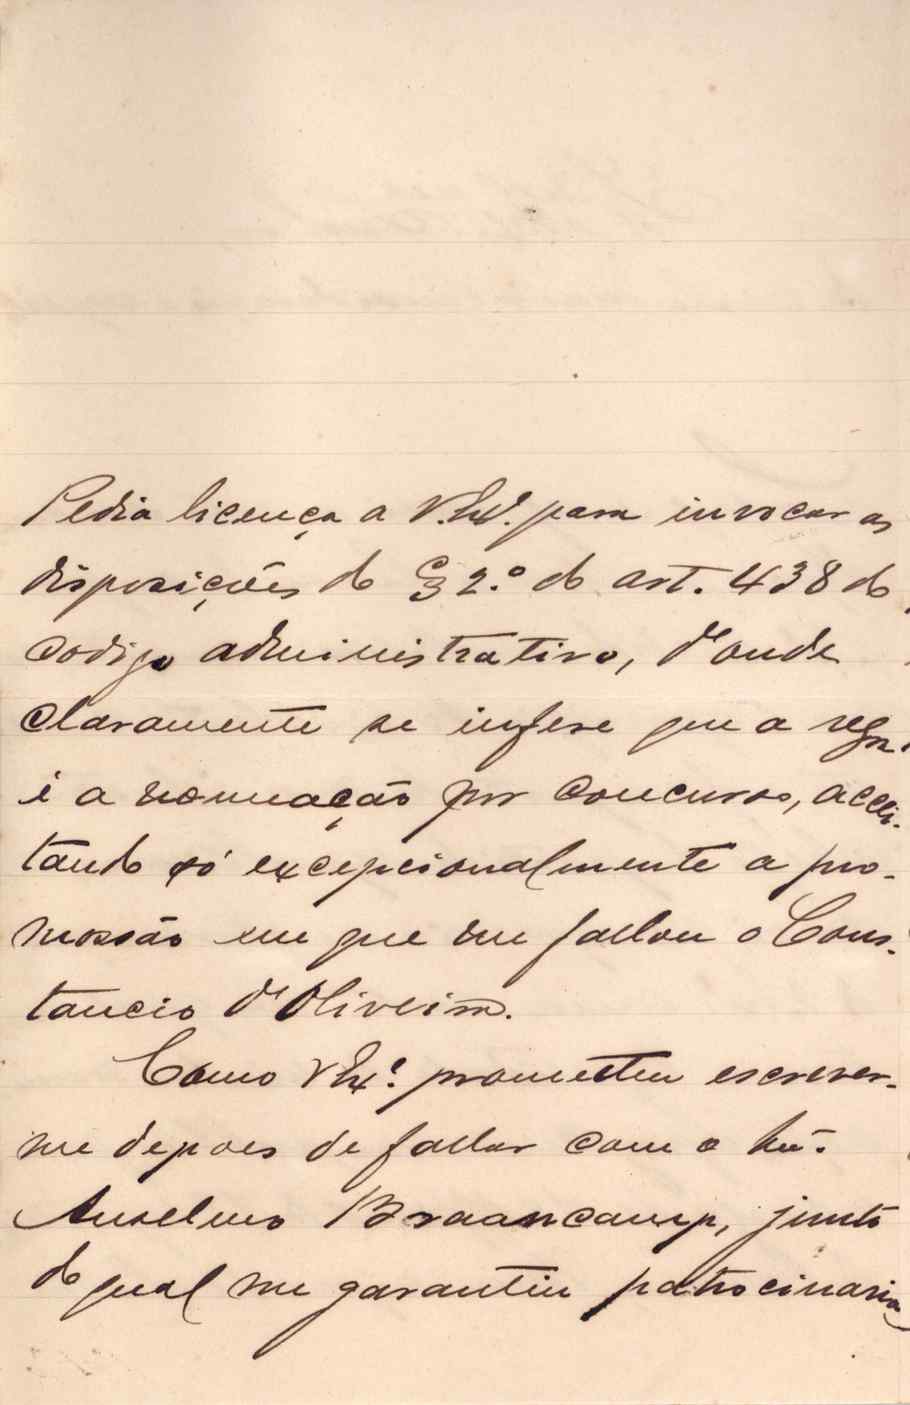 Pedia licença a V. Exª. para invocar as
disposições do § 2.º do art. 438 do
codigo administrativo, d'onde
claramente se infere que a regra
é a nomeação por concurso, accei-
tando só excepcionalmente a pro-
mossão em que me fallou o Cons-
tancio d'Oliveira.
Como V Exª. prometteu escrever-
me depois de fallar com o
Anselmo Braancamp, junto
do qual me garantiu patrocinaria